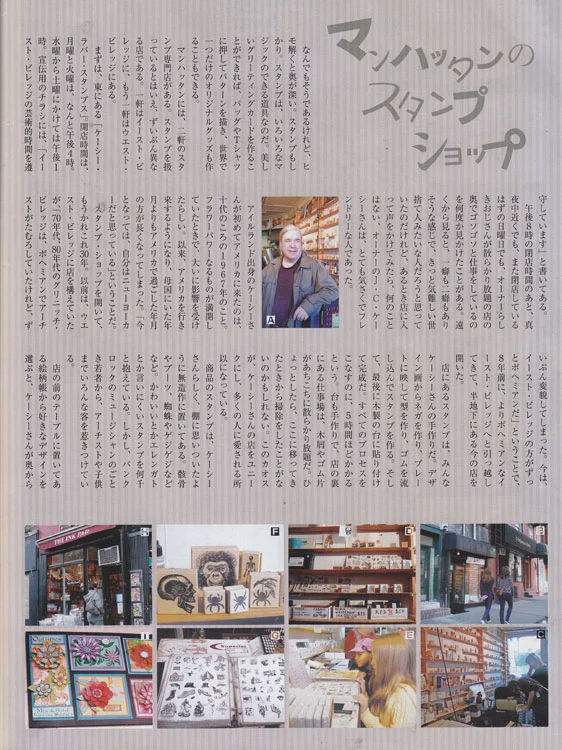 マンハッタンの
スタンプ
ショップ
なんでもそうであるけれど、ヒ
モ解くと奥が深い。スタンプもし
かり。スタンプは、いろいろなマ
ジックのできる道具なのだ。美し
いグリーティングカードを作るこ
とができれば、バックやTシャツ
に押してパターンを描き、世界で
一つだけのオリジナルグッズも作
ることもできる。
マンハッタンには、二軒のスタ
ンプ専門店がある。スタンプを扱
っているとはいえ、ずいぶん異な
る店である。一軒はイースト・ビ
レッジに、もう一軒はウエスト・
ビレッジにある。
まずは、東にある「ケーシー・
ラバー・スタンプス」。開店時間は、
月曜と火曜は、なんと午後4時。
水曜から土曜にかけては午後1
時。宣伝用のチラシには、「イー
スト・ビレッジの芸術的時間を遵
守しています」と書いてある。
午後8時の閉店時間のあと、真
夜中近くでも、また閉店している
はずの日曜日でも、オーナーらし
きおじさんが散らかり放題の店の
奥でゴソゴソと仕事をしているの
を何度か見かけたことがある。遠
くから見ると、一癖も二癖もあり
そうな感じで、きっと気難しい世
捨て人みたいな人だろうと思って
いたのだけれど、あるとき店に入
って声をかけてみたら、何のこと
はない、オーナーのJ・C・ケー
シーさんは、とても気さくでフレ
ンドリーな人であった。
アイルランド出身のケーシーさ
んが初めてアメリカに来たのは、
十代のころの1967年のこと。
フラワーパワーなるものが満開し
ていたときで、大いに影響を受け
たらしい。以来、アメリカを行き
来するようになり、母国にいた年
月よりもアメリカで過ごした年月
の方が長くなってしまった。「今
となっては、自分はニューヨーカ
ーだと思っている」ということだ。
スタンプ・ショップを開いて、
もうかれこれ30年。以前は、ウエ
スト・ビレッジに店を構えていた
が、「70年代、80年代のグリニッチ・
ビレッジは、ボヘミアンでアーチ
ストがたむろしていたけれど、ず
いぶん変貌してしまった。今は、
イースト・ビレッジの方がずっ
とボヘミアンだ」ということで、
8年前に、よりボヘミアンなイ
ースト・ビレッジへと引っ越し
てきて、半地下にある今の店を
開いた。
店にあるスタンプは、みんな
ケーシーさんの手作りだ。デザ
イン画からネガを作り、プレー
トに映して型を作り、ゴムを流
し込んでスタンプを作る。そし
て、最後に木製の台に貼り付け
て完成だ。すべてのプロセスを
こなすのに、5時間ほどかかる
という。台も手作りで、店の裏
にある仕事場は、木屑やゴム片
があちこちに散らかり放題だ。ひ
ょっとしたら、ここに移ってき
たときから掃除をしたことがな
いのかもしれない。このカオス
が、ケーシーさんの店をユニー
クにし、多くの人に愛される所
以になっている。
商品のスタンプは、ケーシー
さんらしく、棚に思い思いたよ
うに無造作に置いてある。骸骨
やブーツ、蜘蛛やゲジゲジな
ど、かわいいとかエレガント
とか言いにくいスタンプを何千
と抱えている。しかし、パンク
ロックのミュージシャンのごと
き若者から、アーチストや子供
まで、いろんな客を惹きつけてい
る。
店の前のテーブルに置いてあ
る絵柄帳から好きなデザインを
選ぶと、ケーシーさんが奥から
A
B
C
D
E
F
G
H
THE INK PAD